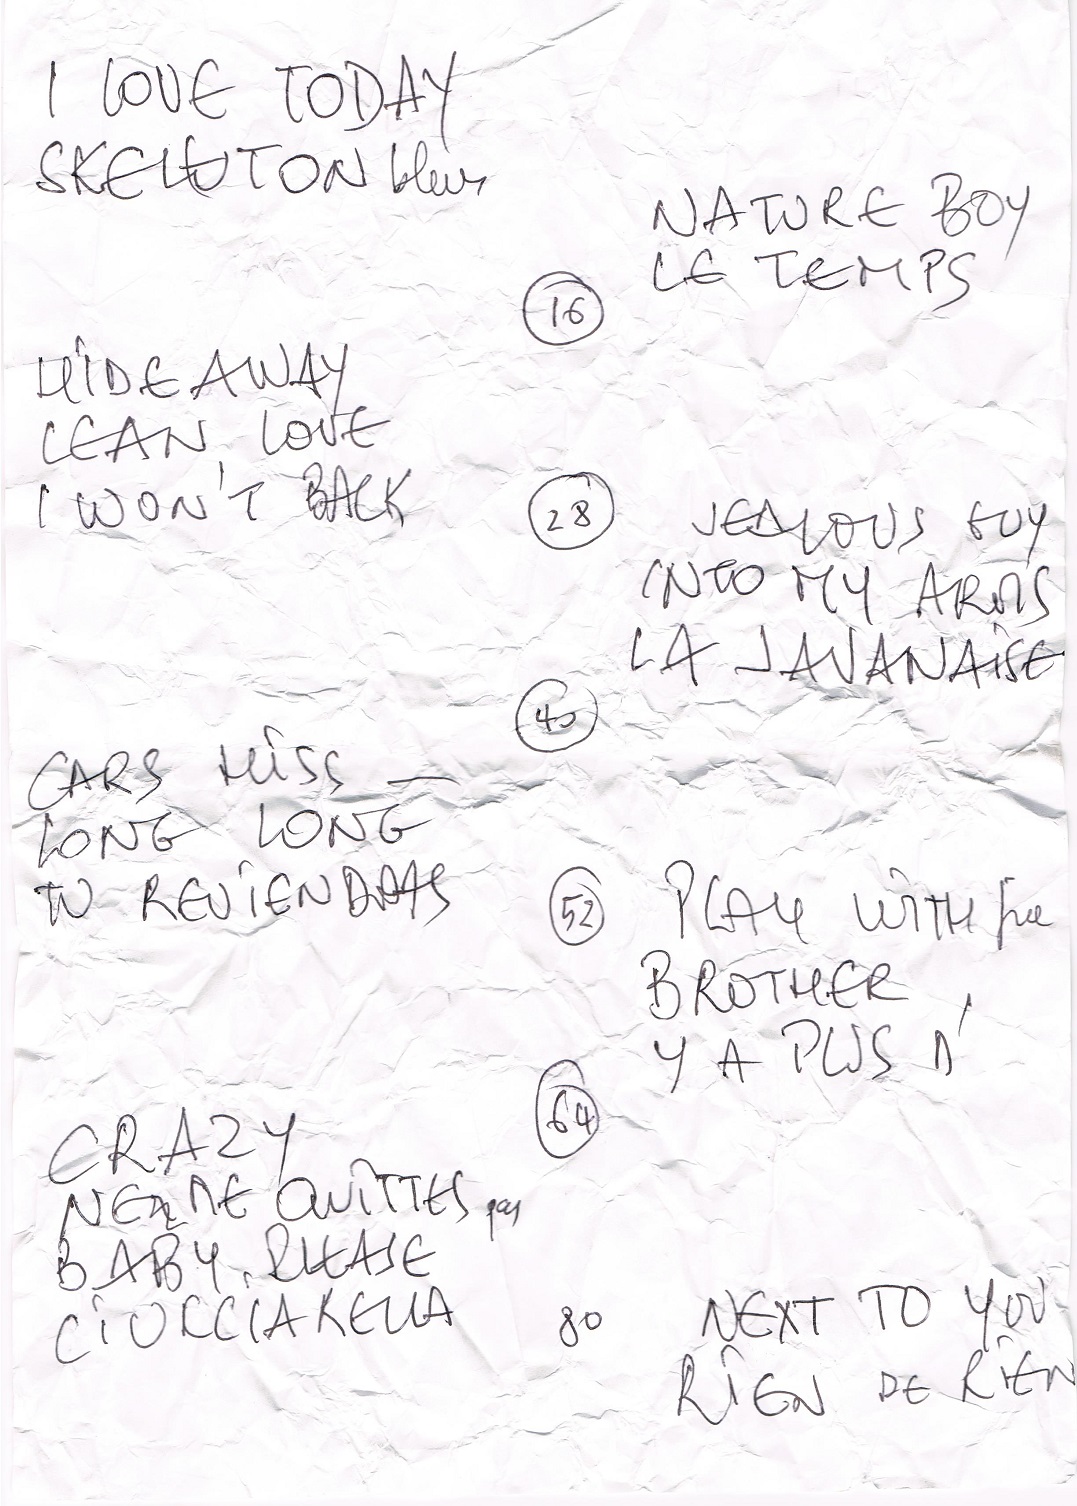 I LOVE TODAY
SKELETON blues
NATURE BOY
LE TEMPS
16
HIDEAWAY
LEAN LOVE
I WON'T BACK
28
JEALOUS GUY
INTO MY ARMS
LA JAVANAISE
40
CARS HISS —
LONG LONG
TU REVIENDRAS
52
PLAY WITH fire
BROTHER
Y A PLUS D'
64
CRAZY
NE ME QUITTES pas
BABY, PLEASE
80
NEXT TO YOU
RIEN DE RIEN